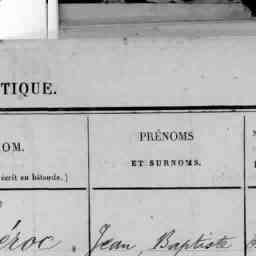 TIQUE.
OM.
PRÉNOMS
ET SURNOMS.
écrit en bâtarde.)
éroc. Jean, Baptiste